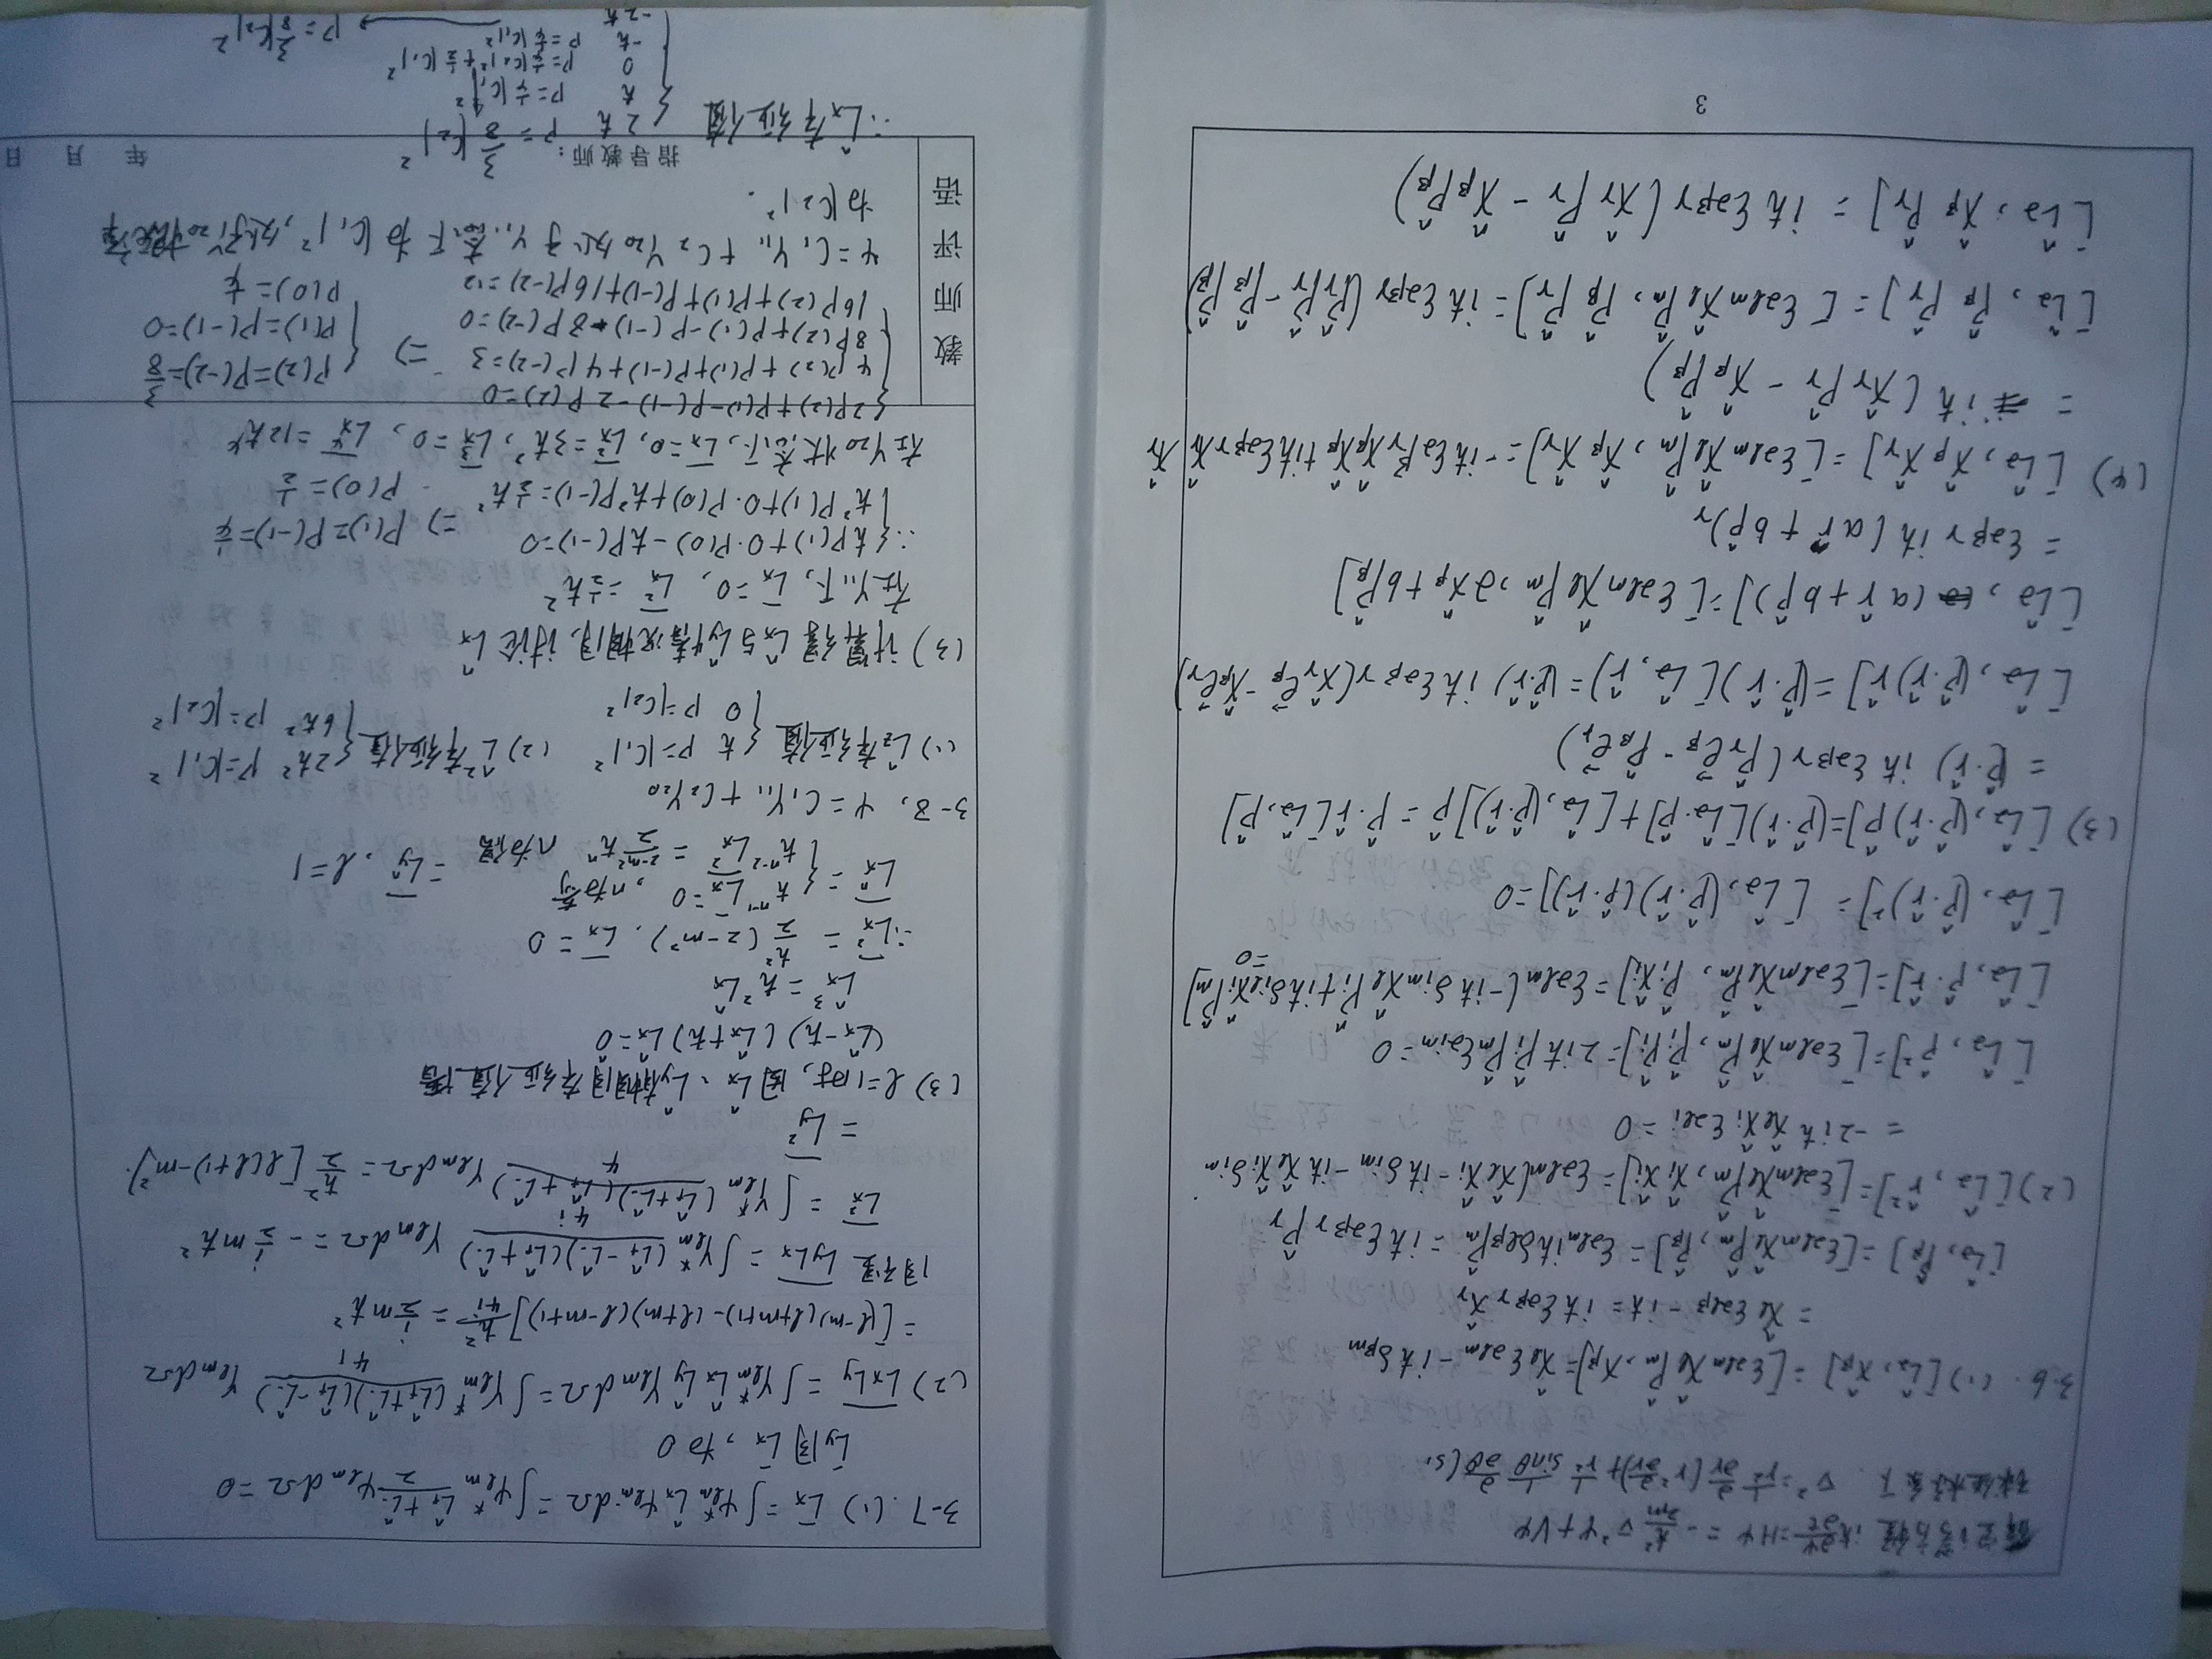 薛定谔方程 iħ∂Ψ/∂t = HΨ = -ħ²/2m ∇²Ψ + VΨ
球坐标系下. ∇² = 1/r² ∂/∂r (r² ∂/∂r) + 1/r² 1/sinθ ∂/∂θ (s.
3.6. (1) [L̂α, x̂β] = [εαlm x̂l p̂m, xβ] = x̂l εαlm - iħ δβm
= x̂l εαlβ - iħ = iħ εαβγ x̂γ
[L̂α, p̂β] = [εαlm x̂l p̂m, p̂β] = εαlm iħ δlβ p̂m = iħ εαβγ p̂γ
(2) [L̂α, r̂²] = [εαlm x̂l p̂m, x̂i x̂i] = εαlm (x̂l x̂i - iħ δim - iħ x̂l x̂i δim
= -2iħ x̂l x̂i εαli = 0
[L̂α, p̂²] = [εαlm x̂l p̂m, p̂i p̂i] = 2iħ p̂i p̂m εαim = 0
[L̂α, p̂·r̂] = [εαlm x̂l p̂m, p̂i x̂i] = εαlm (-iħ δim x̂l p̂i + iħ δil x̂i p̂m]
= 0
[L̂α, (p̂·r̂)²] = [L̂α, (p̂·r̂)(p̂·r̂)] = 0
(3) [L̂α, (p̂·r̂) p̂] = (p̂·r̂) [L̂α. p̂] + [L̂α, (p̂·r̂)] p̂ = p̂·r̂ [L̂α, p̂]
= (p̂·r̂) iħ εαβγ (p̂γ e⃗β - p̂β e⃗γ)
[L̂α, (p̂·r̂) r̂] = (p̂·r̂) [L̂α, r̂) = (p̂·r̂) iħ εαβγ (x̂γ e⃗β - x̂β e⃗γ)
[L̂α, (a r̂ + b p̂)] = [εαlm x̂l p̂m, a x̂β + b p̂β]
= εαβγ iħ (a r̂ + b p̂)γ
(4) [L̂α, x̂β x̂γ] = [εαlm x̂l p̂m, x̂β x̂γ] = -iħ εαβγ x̂β x̂β + iħ εαβγ x̂γ x̂γ
= iħ (x̂γ p̂γ - x̂β p̂β)
[L̂α, p̂β p̂γ] = [εαlm x̂l p̂m, p̂β p̂γ] = iħ εαβγ (p̂γ p̂γ - p̂β p̂β)
[L̂α, x̂β p̂γ] = iħ εαβγ (x̂γ p̂γ - x̂β p̂β)
3
3-7. (1) L̄x = ∫ψ*lm L̂x ψlm dΩ = ∫ψ*lm (L̂+ + L̂-)/2 ψlm dΩ = 0
L̄y同L̄x, 为0
(2) \overline{LxLy} = ∫Y*lm L̂x L̂y Ylm dΩ = ∫Y*lm (L̂+ + L̂-)(L̂+ - L̂-)/4i Ylm dΩ
= [(l-m)(l+m+1) - (l+m)(l-m+1)] ħ²/4i = i/2 mħ²
同理 \overline{LyLx} = ∫Y*lm (L̂+ - L̂-)(L̂+ + L̂-)/4i Ylm dΩ = - i/2 mħ²
\overline{Lx²} = ∫Y*lm (L̂+ + L̂-)(L̂+ + L̂-)/4 Ylm dΩ = ħ²/2 [l(l+1) - m²].
= \overline{Ly²}
(3) l=1时, 因L̂x、L̂y有相同本征值谱
(L̂x - ħ)(L̂x + ħ) L̂x = 0̂
L̂x³ = ħ² L̂x
∴ \overline{Lx²} = ħ²/2 (2-m²), L̄x = 0
\overline{Lxⁿ} = { ħⁿ⁻¹ L̄x = 0 , n为奇
ħⁿ⁻² \overline{Lx²} = (2-m²)/2 ħⁿ n为偶 = \overline{Lyⁿ}, l=1
3-8, ψ = C₁Y₁₁ + C₂Y₂₀
(1) L̂z本征值 { ħ P=|C₁|² (2) L̂²本征值 { 2ħ² P=|C₁|²
0 P=|C₂|² 6ħ² P=|C₂|²
(3) 计算得L̂x与L̂y情况相同, 讨论L̂x
在Y₁₁下, L̄x = 0, \overline{Lx²} = ½ħ²
∴ { ħP(1) + 0·P(0) - ħP(-1) = 0
ħ²P(1) + 0·P(0) + ħ²P(-1) = ½ħ² => P(1) = P(-1) = ¼
P(0) = ½
在Y₂₀状态下, L̄x = 0, \overline{Lx²} = 3ħ², \overline{Lx³} = 0, \overline{Lx⁴} = 12ħ⁴
{ 2P(2) + P(1) - P(-1) - 2P(2) = 0
4P(2) + P(1) + P(-1) + 4P(-2) = 3
8P(2) + P(1) - P(-1) - 8P(-2) = 0
16P(2) + P(1) + P(-1) + 16P(-2) = 12
=> { P(2) = P(-2) = 3/8
P(1) = P(-1) = 0
P(0) = ¼
ψ = C₁Y₁₁ + C₂Y₂₀ 处于Y₁₁态下为|C₁|², 处于Y₂₀概率
为|C₂|².
教师评语
指导教师:
年 月 日
∴ L̂x本征值 { 2ħ P = 3/8 |C₂|²
ħ P = ¼|C₁|²
0 P = ¼|C₂|² + ½|C₁|²
-ħ P = ¼|C₁|²
-2ħ → P = 3/8|C₂|²